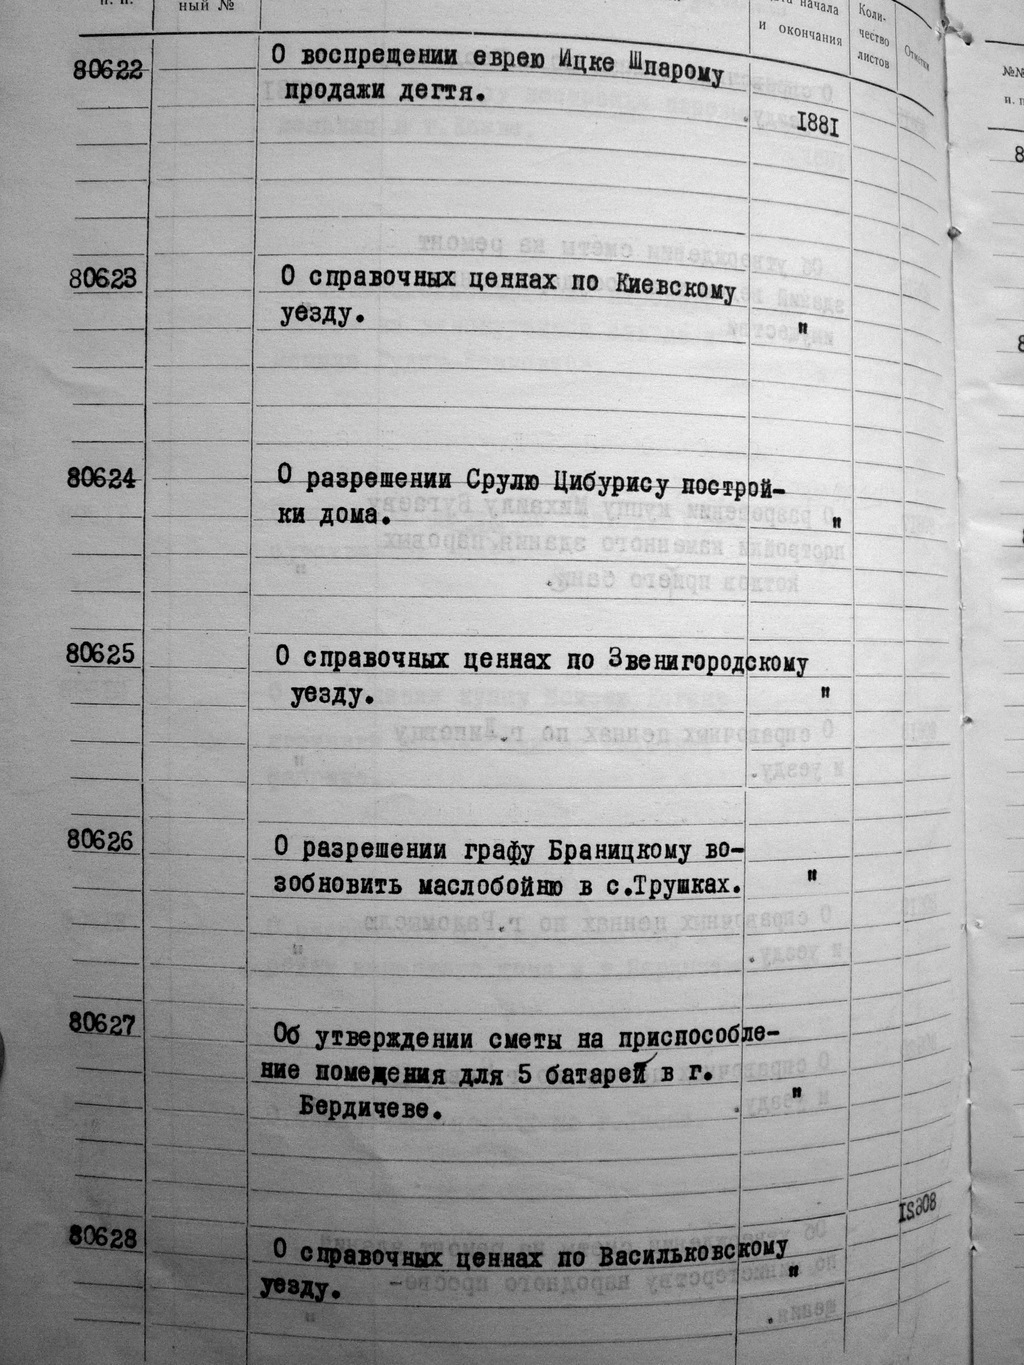 п. п.
ный №
начала
и окончания
Коли-
чество
листов
Отметки
№№
80622
О воспрещении еврею Ицке Шпарому
продажи дегтя.
1881
80623
О справочных ценнах по Киевскому
уезду.
"
80624
О разрешении Срулю Цибурису построй-
ки дома.
"
80625
О справочных ценнах по Звенигородскому
уезду.
"
80626
О разрешении графу Браницкому во-
зобновить маслобойню в с.Трушках.
"
80627
Об утверждении сметы на приспособле-
ние помедения для 5 батарей в г.
Бердичеве.
"
80628
О справочных ценнах по Васильковскому
уезду.
"